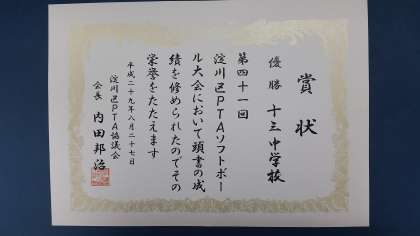 賞状
優勝 十三中学校
第四十一回
淀川区PTAソフトボー
ル大会において頭書の成
績を修められたのでその
栄誉をたたえます
平成二十九年八月二十七日
淀川区PTA協議会
会長 内田邦治